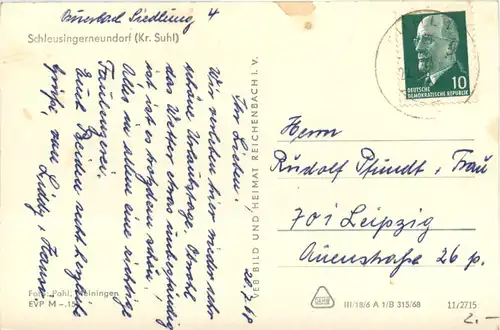 Auerbach Siedlung 4
Schleusingerneundorf (Kr. Suhl)
20.7.69
Ihr Lieben,
Wir erleben hier wieder sehr
schöne Urlaubstage. Obwohl
das Wetter etwas
ist, ist es trotzdem schön.
Alles in allem eine richtige
Faulenzerei.
Euch Beiden recht herzliche
Grüße, von Liddy, Hanni
Foto: Pohl, Meiningen
EVP M –.15
VEB BILD UND HEIMAT REICHENBACH I. V.
DEUTSCHE
DEMOKRATISCHE REPUBLIK
10
Herrn
Rudolf Pfundt, Frau
701 Leipzig
Auenstraße 26 p.
III/18/6 A 1/B 315/68
11/2715
2.-